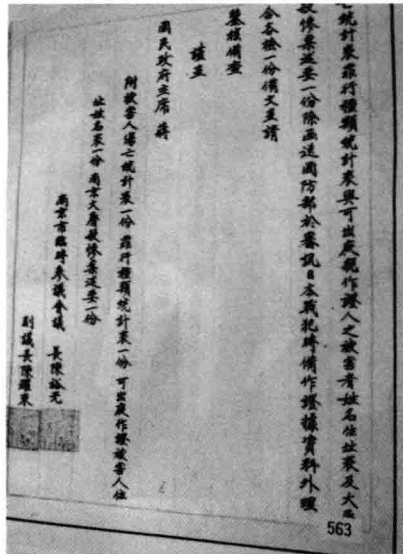 亡統計表罪行種類統計表與可出庭親作證人之被害者姓名住址表及大屠
殺慘案述要一份除函送國防部於審訊日本戰犯時備作證據資料外理
合各檢一份備文呈請
鑒核備查
謹呈
國民政府主席蔣
附被害人傷亡統計表一份 罪行種類統計表一份 可出庭作證被害人住
址姓名表一份 南京大屠殺慘案述要一份
南京市臨時參議會議 長陳裕光
副議長陳耀東
563